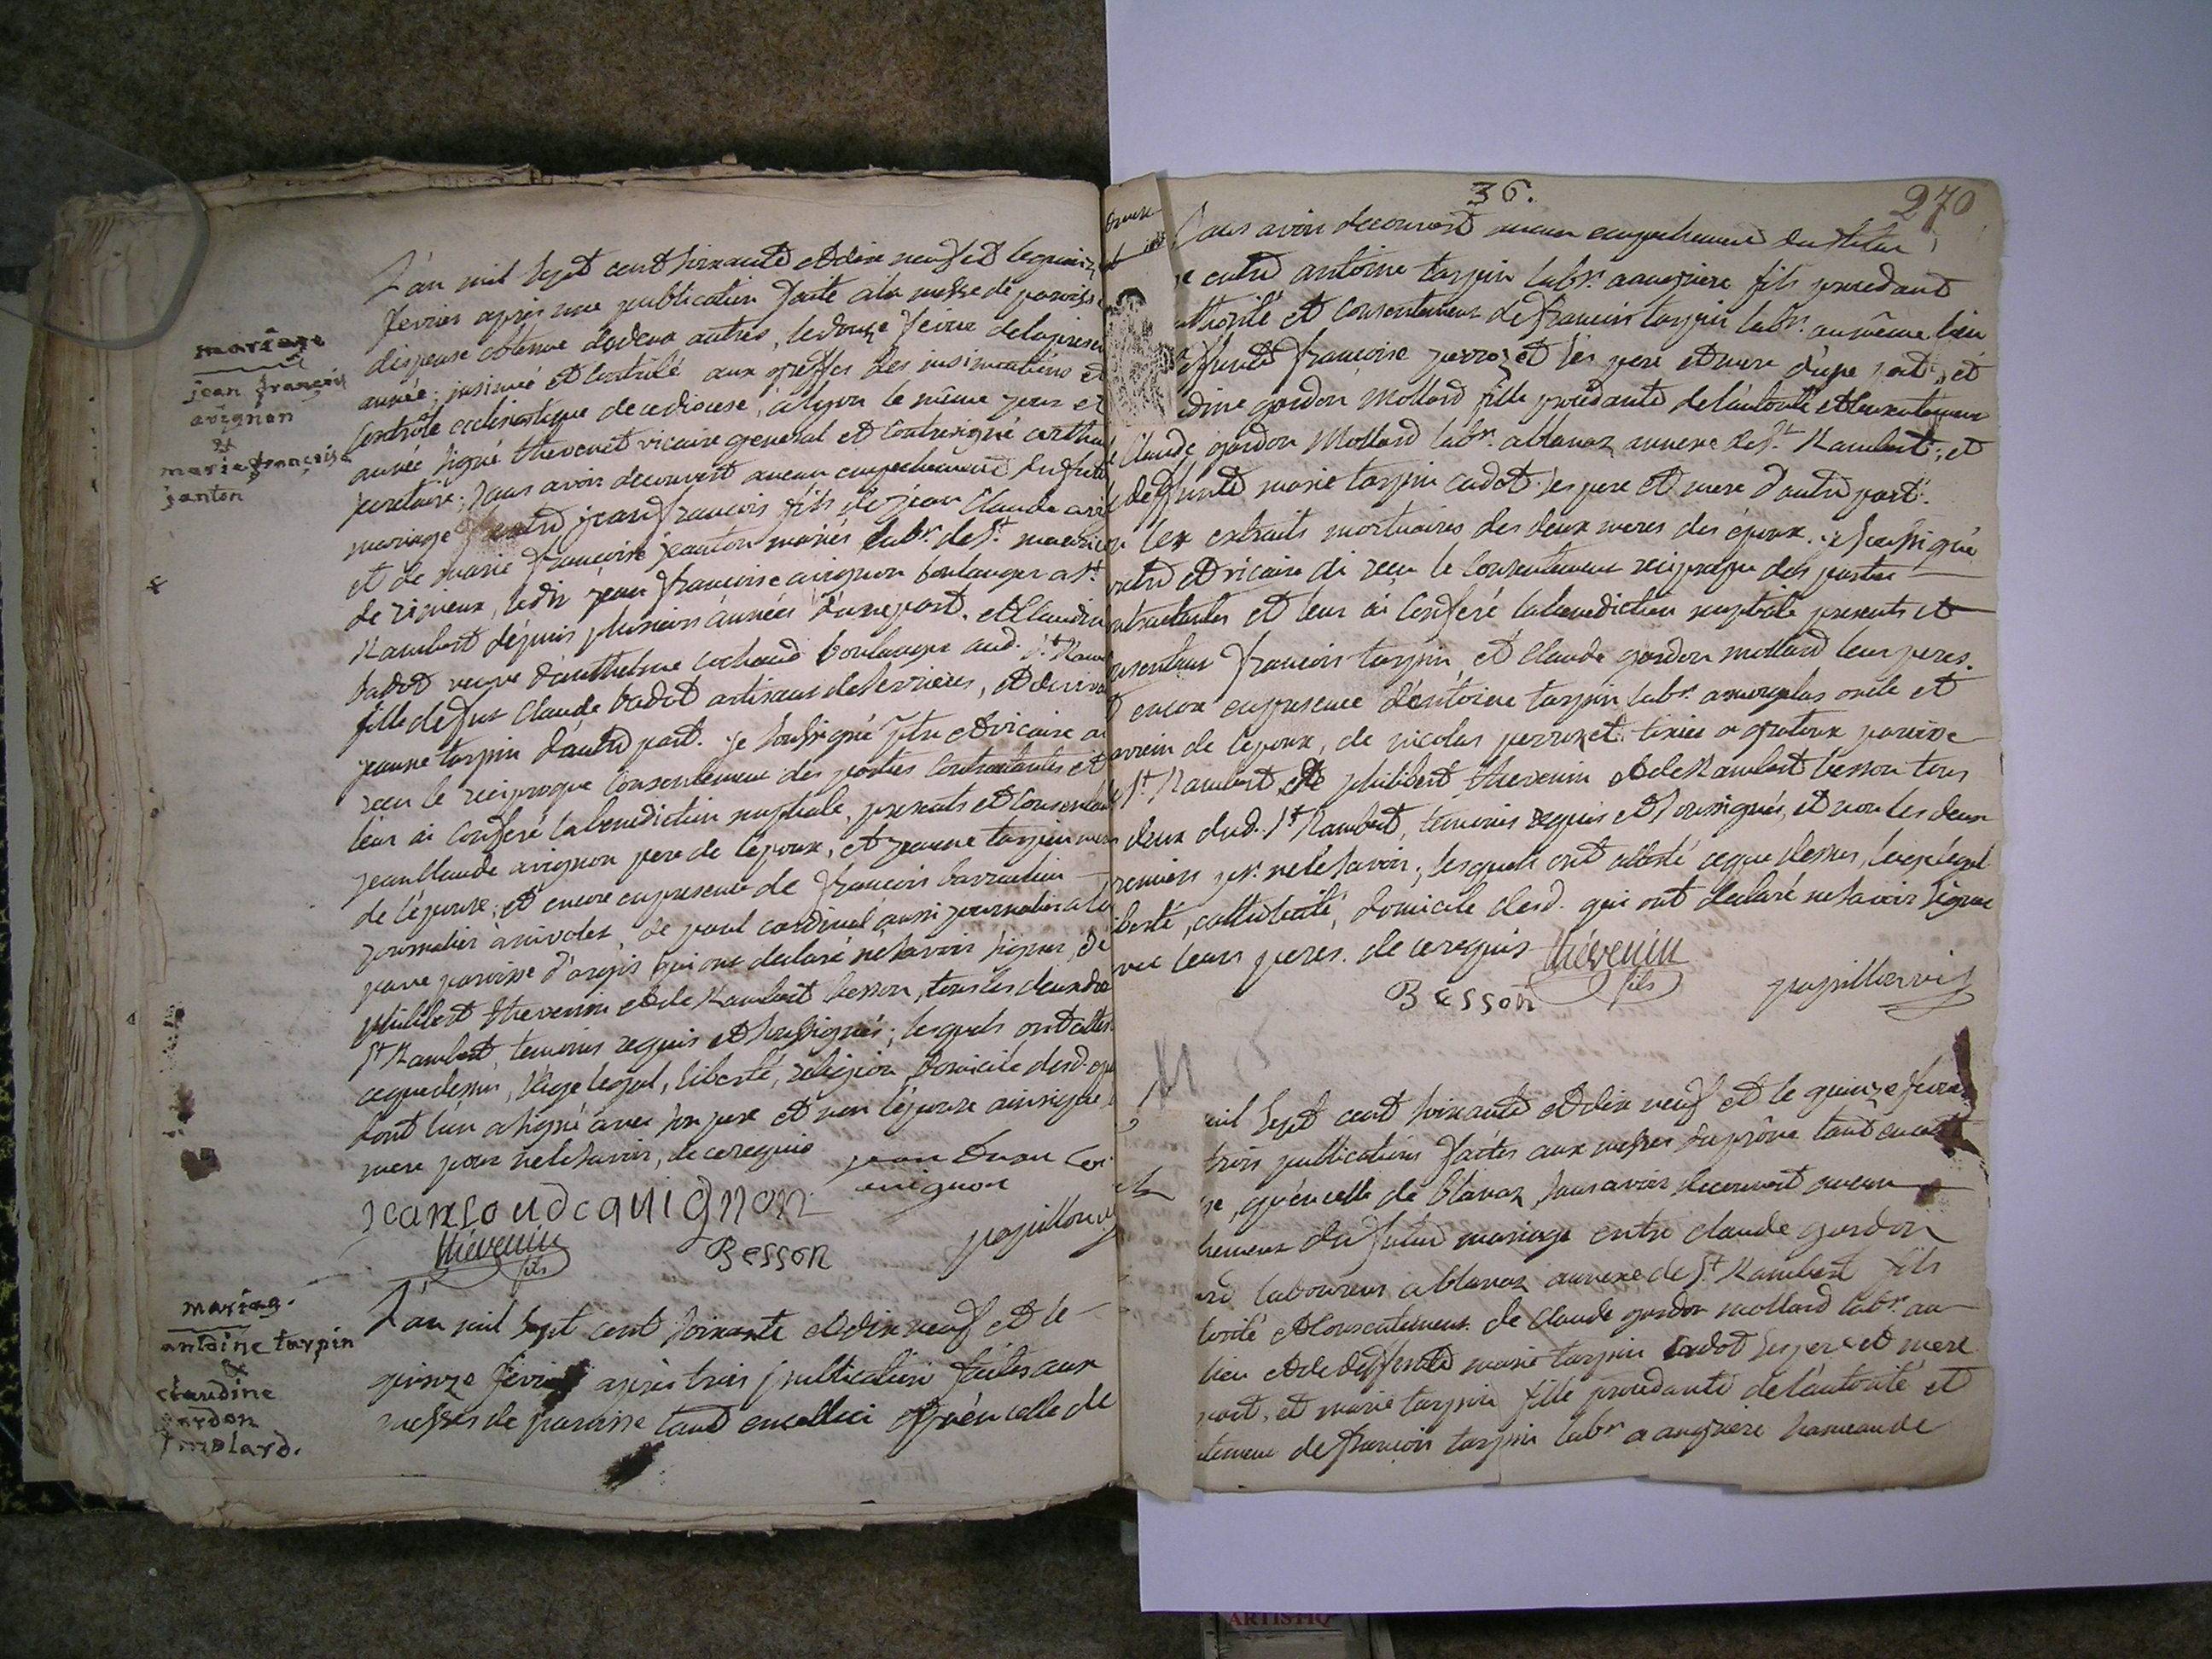 mariage
jean françois
avignon
&
marie françoise
janton
L'an mil sept cent soixante et dix neuf et le quinz
fevrier après une publication faite a la messe de paroisse
dispense obtenue de deux autres, le douze fevrier de la presen
année, insinué et controlé aux greffes des insinuations et
controle ecclésiastique de ce diocese, à lyon le même jour et
année signé thevenet vicaire general et contresigné
secretaire; sans avoir decouvert aucun empechement du futur
mariage entre jean françois fils de jean Claude avig
et de marie françoise janton mariés labr. de st. maurice
de rigneux, ledit jean françois avignon boulanger a st.
Rambert dépuis plusieurs années d'une part. et Claudine
badot veuve d'anthelme cochand boulanger aud. st. Ram
fille de feu Claude badot artisan de serrieres, et de viva
jeanne tarpin d'autre part. je soussigné ptre et vicaire ai
reçu le reciproque consentement des parties contractantes et
leur ai conferé la benediction nuptiale, presents et consentan
jean Claude avignon pere de l'epoux, et jeanne tarpin mere
de l'épouse; et encore en presence de françois barraudin
journalier à nivolet, de paul cardinal aussi journalier a la
pave paroisse d'argis qui ont declaré ne savoir signer, de
philibert thevenin et de Rambert besson, tous les deux de
St Rambert, temoins requis et soussignés; lesquels ont attes
ce que dessus, l'age legal, liberté, religion, domicile desd. ep
dont l'un a signé avec son pere et non l'epouse ainsi que s
mere pour ne le savoir, de ce requis
jean
avignon
jean Loud avignon
thévenin
fils
Besson
papillon v
mariag.
antoine tarpin
&
claudine
gordon
molard.
L'an mil sept cent soixante et dix neuf et le
quinze fevrier après trois publications faites aux
messes de paroisse tant en celle ci qu'en celle de
36.
270
Sans avoir decouvert aucun empechement du futur
e entre antoine tarpin labr. a angriere fils procedant
uthorité et consentement de françois tarpin labr. au même lieu
deffunte françoise perrozet ses pere et mere d'une part; et
dine gordon Mollard fille procedante de l'autorité et consentement
Claude gordon Mollard labr. a blanaz annexe de st. Rambert; et
deffunte marie tarpin cadot ses pere et mere d'autre part.
les extraits mortuaires des deux meres des époux. je soussigné
pretre et vicaire ai reçu le consentement reciproque des parties
ntractantes et leur ai conferé la benediction nuptiale presents et
nsentans françois tarpin et Claude gordon mollard leurs peres.
encore en presence d'antoine tarpin labr. a oncle et
arrein de l'epoux, de nicolas perrozet paroisse
St. Rambert, de philibert thevenin et de Rambert besson tous
deux dud. St Rambert, temoins requis et soussignés, et non les deux
remiers pr. ne le savoir; lesquels ont attesté ce que dessus, l'age legal
iberté, catholicité, domicile desd. qui ont declaré ne savoir signer
vec leurs peres. de ce requis
thévenin
fils
Besson
papillon vic
mil sept cent soixante et dix neuf et le quinze fevrier
trois publications faites aux messes du prône tant en cett
se, qu'en celle de blanaz, sans avoir decouvert aucun
hement du futur mariage entre claude gordon
ard laboureur a blanaz annexe de St Rambert fils
torité et consentement de Claude gordon mollard labr. au
lieu et de deffunte marie tarpin cadot ses pere et mere
part, et marie tarpin fille procedante de l'autorité et
tement de françois tarpin labr a angriere hameau de
ARTISTIQ